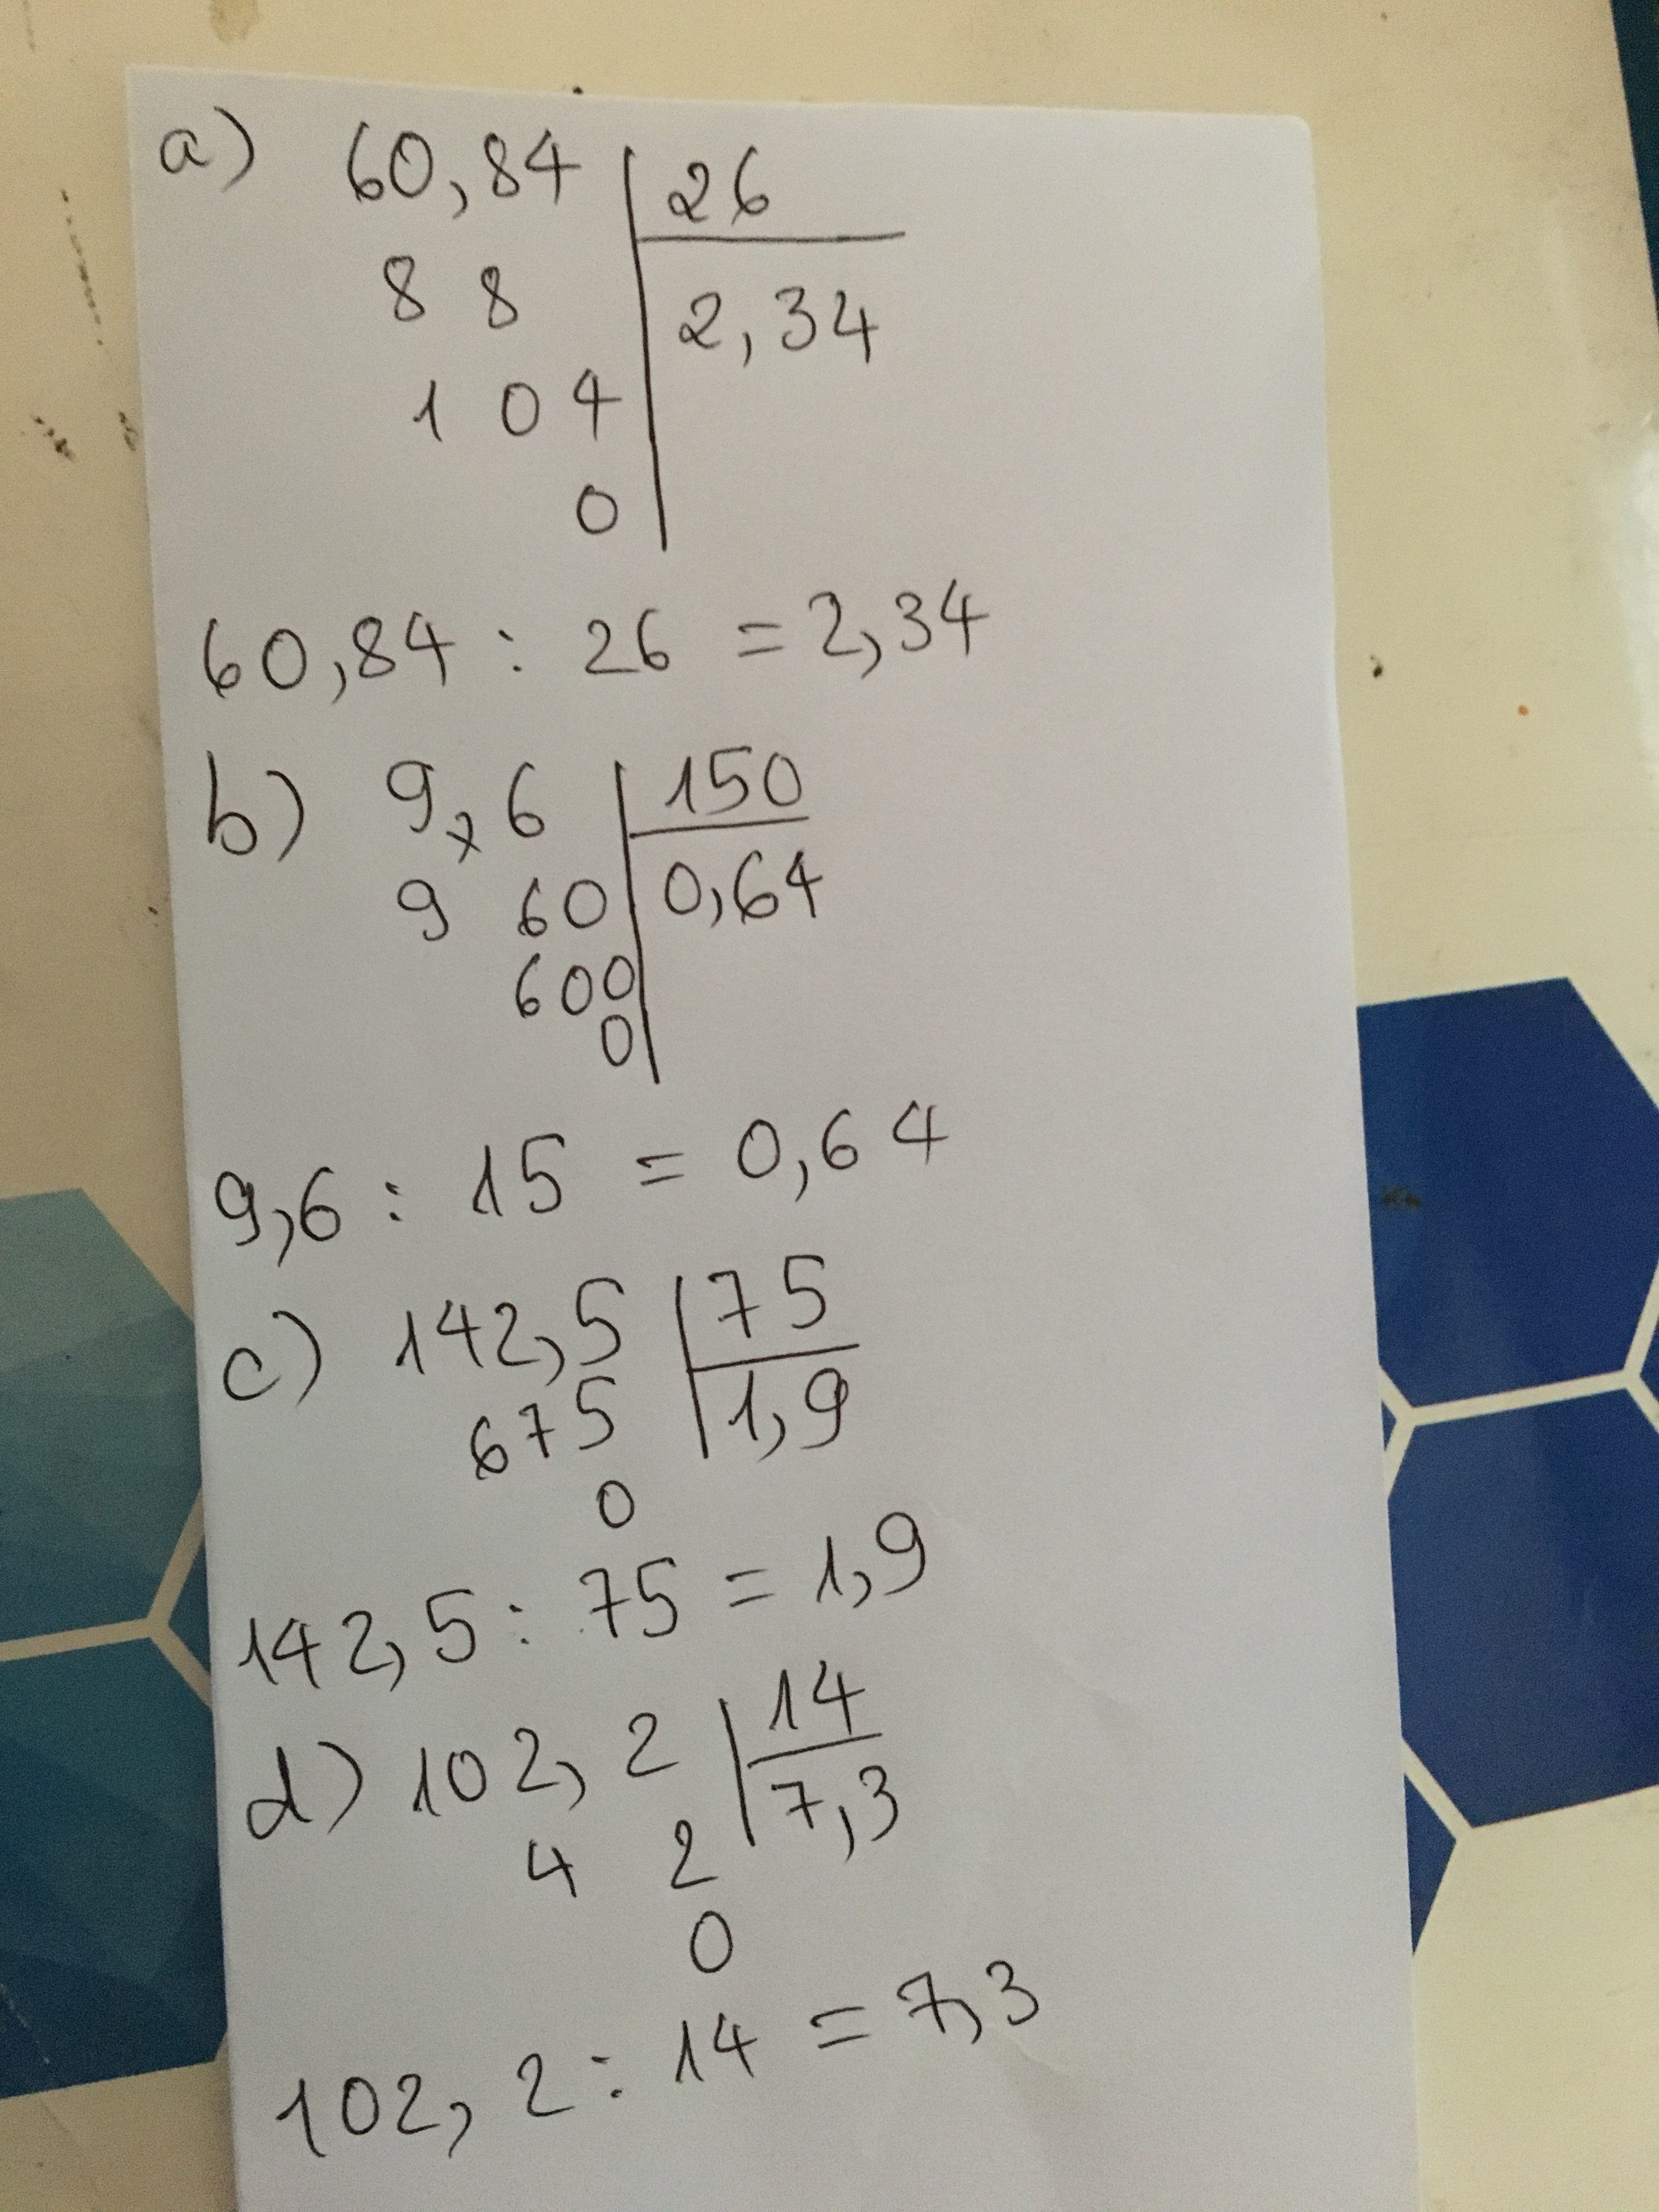 a) 60,84 | 26
8 8 | 2,34
1 0 4
0
60,84 : 26 = 2,34
b) 9,6 | 150
9 60 | 0,64
600
0
9,6 : 15 = 0,64
c) 142,5 | 75
675 | 1,9
0
142,5 : 75 = 1,9
d) 102,2 | 14
4 2 | 7,3
0
102,2 : 14 = 7,3